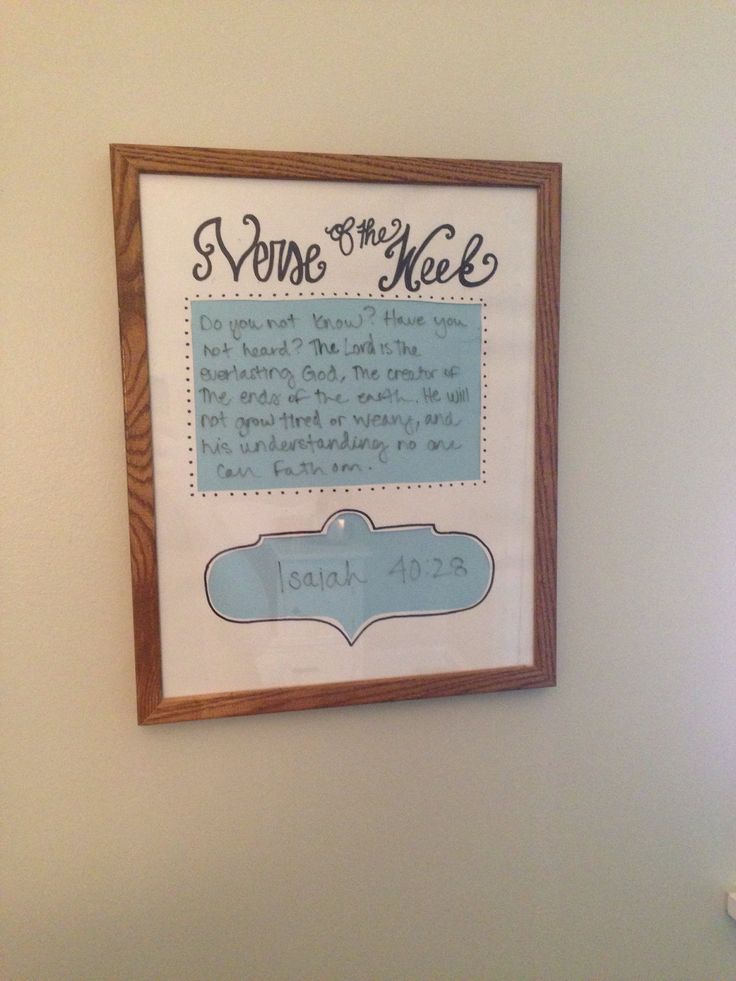 Verse of the Week
Do you not know? Have you
not heard? The Lord is the
everlasting God, The creator of
The ends of the earth. He will
not grow tired or weary, and
his understanding no one
can Fathom.
Isaiah 40:28